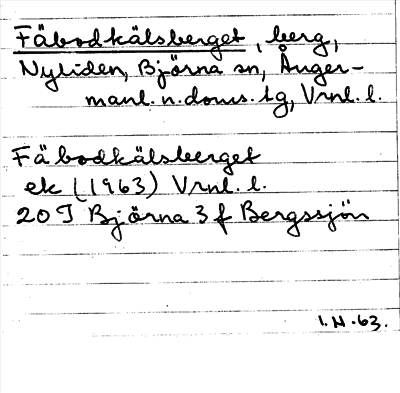 Fäbodkälsberget, berg,
Nyliden, Björna sn, Ånger-
manl. n. doms. tg, Vrnl. l.
Fäbodkälsberget
ek (1963) Vrnl. l.
20 I Björna 3 f Bergssjön
I.N.63.